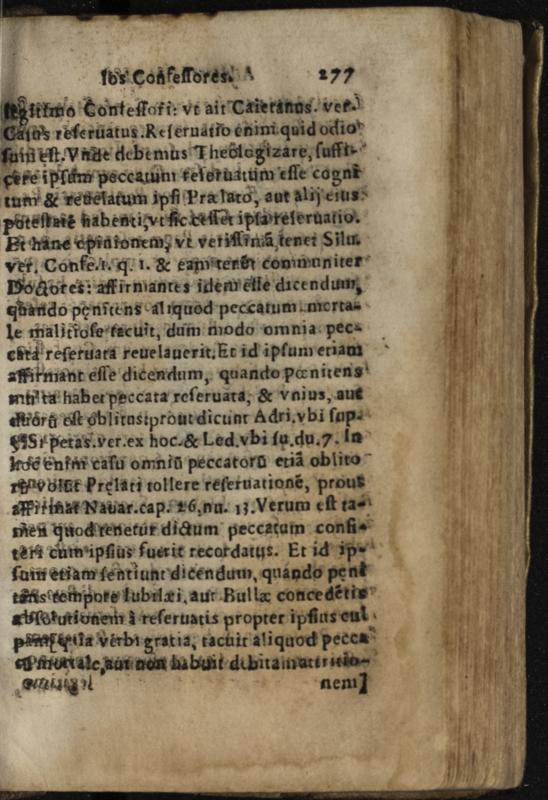 los Confessores. 277
legitimo Confessori: vt ait Caietanus. ver.
Casus reseruatus. Reseruatio enim quid odio
sum est. Vnde debemus Theologizare, suffi-
cere ipsum peccatum reseruatum esse cogni
tum & reuelatum ipsi Prælato, aut alij eius
potestatē habenti, vt sic cesset ipsa reseruatio.
Et hanc opinionem, vt verissimā, tenet Silu.
ver. Confe. 1. q. 1. & eam tenēt communiter
Doctores: affirmantes idem esse dicendum,
quando pęnitens aliquod peccatum morta-
le malitiose tacuit, dum modo omnia pec-
cata reseruata reuelauerit. Et id ipsum etiam
affirmant esse dicendum, quando pœnitens
multa habet peccata reseruata, & vnius, aut
duorū est oblitus: prout dicunt Adri. vbi sup.
§. Si petas. ver. ex hoc. & Led. vbi su. du. 7. In
hoc enim casu omniū peccatorū etiā oblito
rū volūt Pręlati tollere reseruationē, prout
affirmat Nauar. cap. 26. nu. 13. Verum est ta-
men quod tenetur dictum peccatum confi-
teri cum ipsius fuerit recordatus. Et id ip-
sum etiam sentiunt dicendum, quando pęni
tens tempore Iubilæi, aut Bullæ concedētis
absolutionem à reseruatis propter ipsius cul
pam, quia verbi gratia, tacuit aliquod pecca
mortale, aut non habuit debitam attritio-
nem]